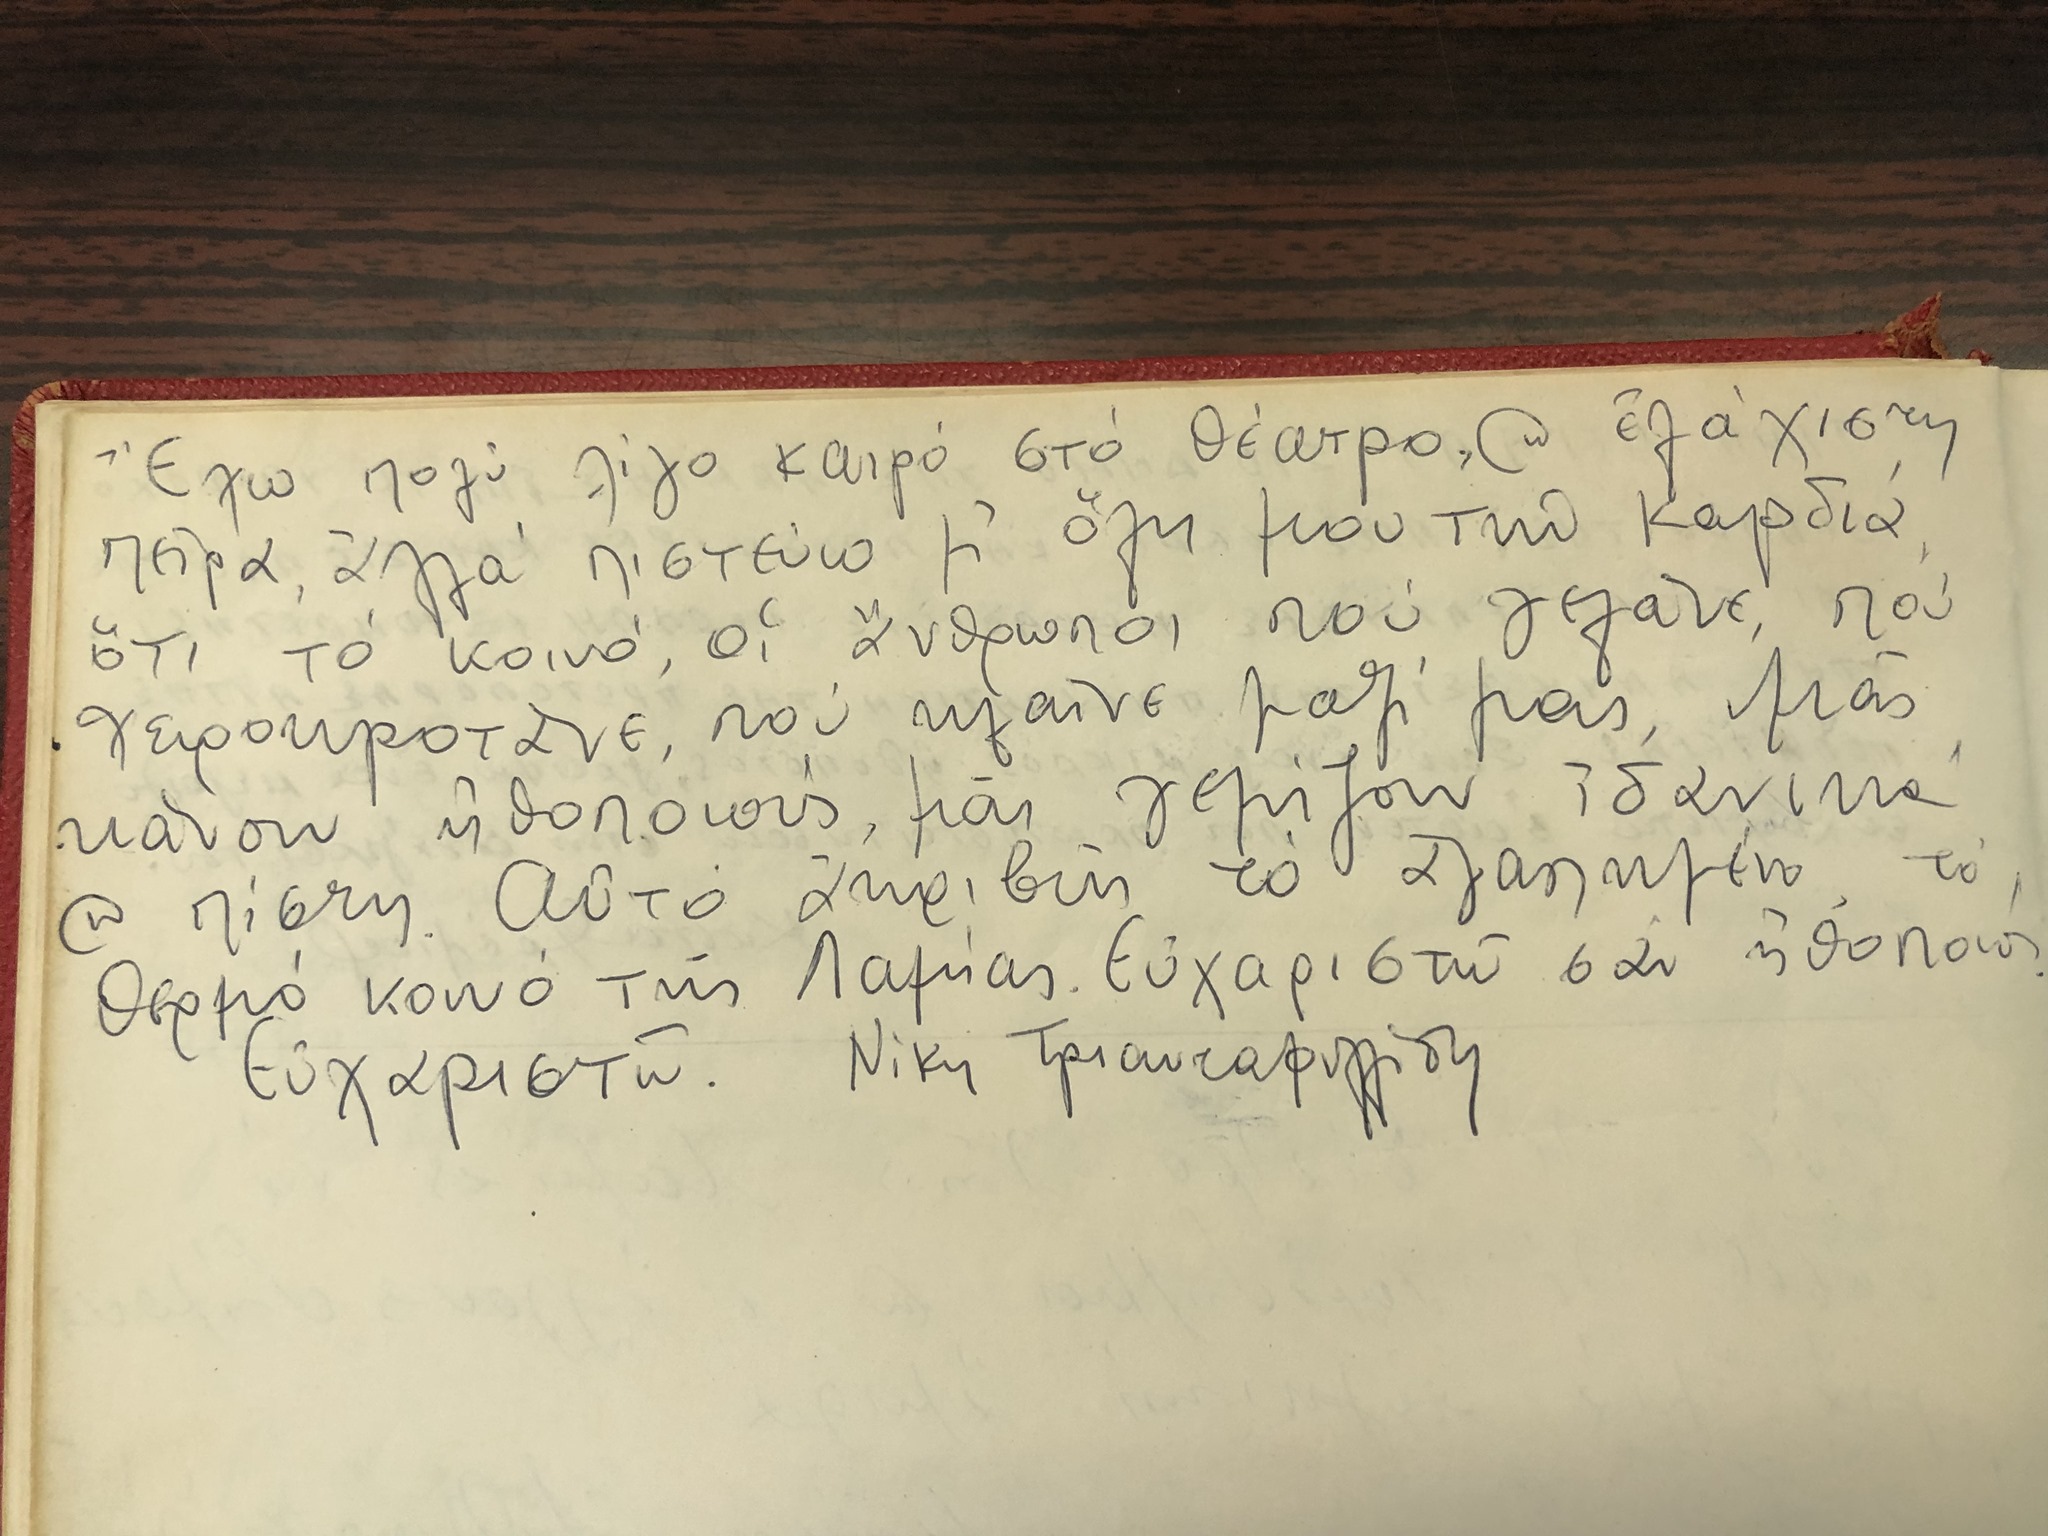 Ἔχω πολύ λίγο καιρό στό θέατρο, καί ἐλάχιστη
πεῖρα, ἀλλά πιστεύω μ' ὅλη μου τήν καρδιά,
ὅτι τό κοινό, οἱ ἄνθρωποι πού γελᾶνε, πού
χειροκροτᾶνε, πού κλαῖνε μαζί μας, μᾶς
κάνουν ἠθοποιούς, μᾶς γεμίζουν ἰδανικά
καί πίστη. Αὐτό ἀκριβῶς τό ἀγαπημένο, τό,
θερμό κοινό τῆς Λαμίας. Εὐχαριστῶ σάν ἠθοποιός.
Εὐχαριστῶ. Νίκη Τριανταφυλλίδη